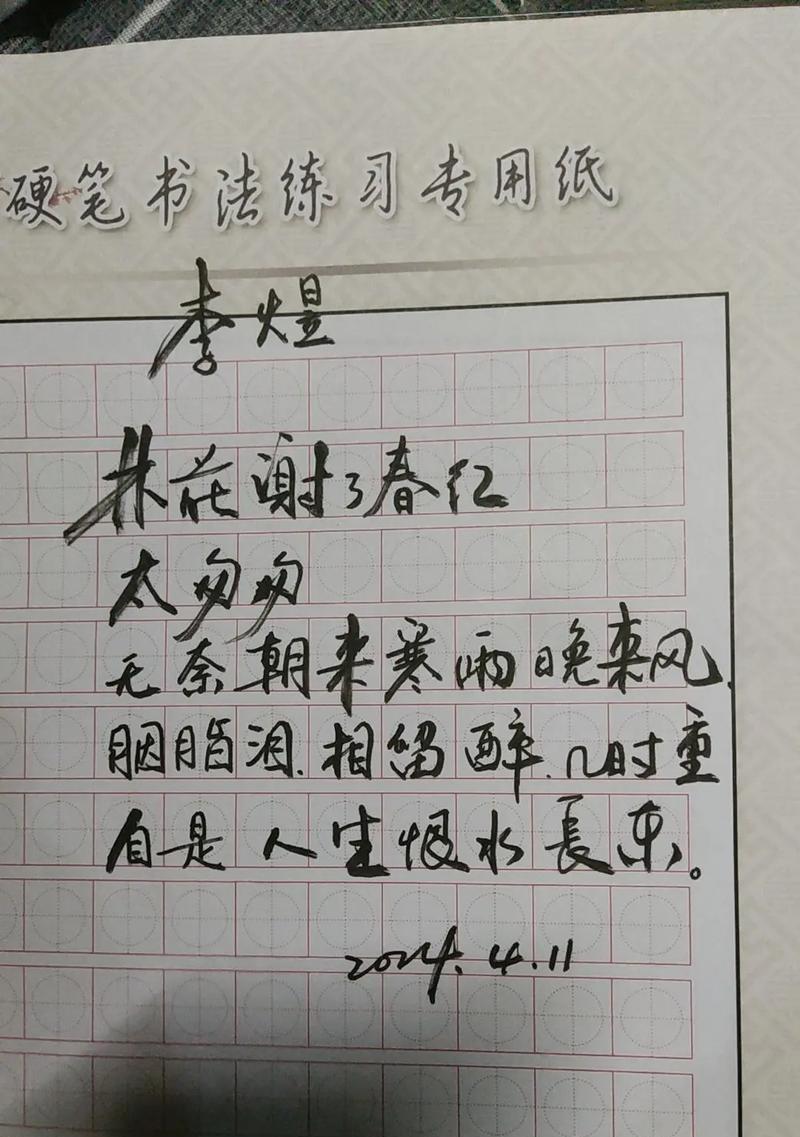 硬笔书法练习专用纸
李煜
林花谢了春红
太匆匆
无奈朝来寒雨晚来风.
胭脂泪.相留醉.几时重
自是人生恨水長东。
2024.4.11